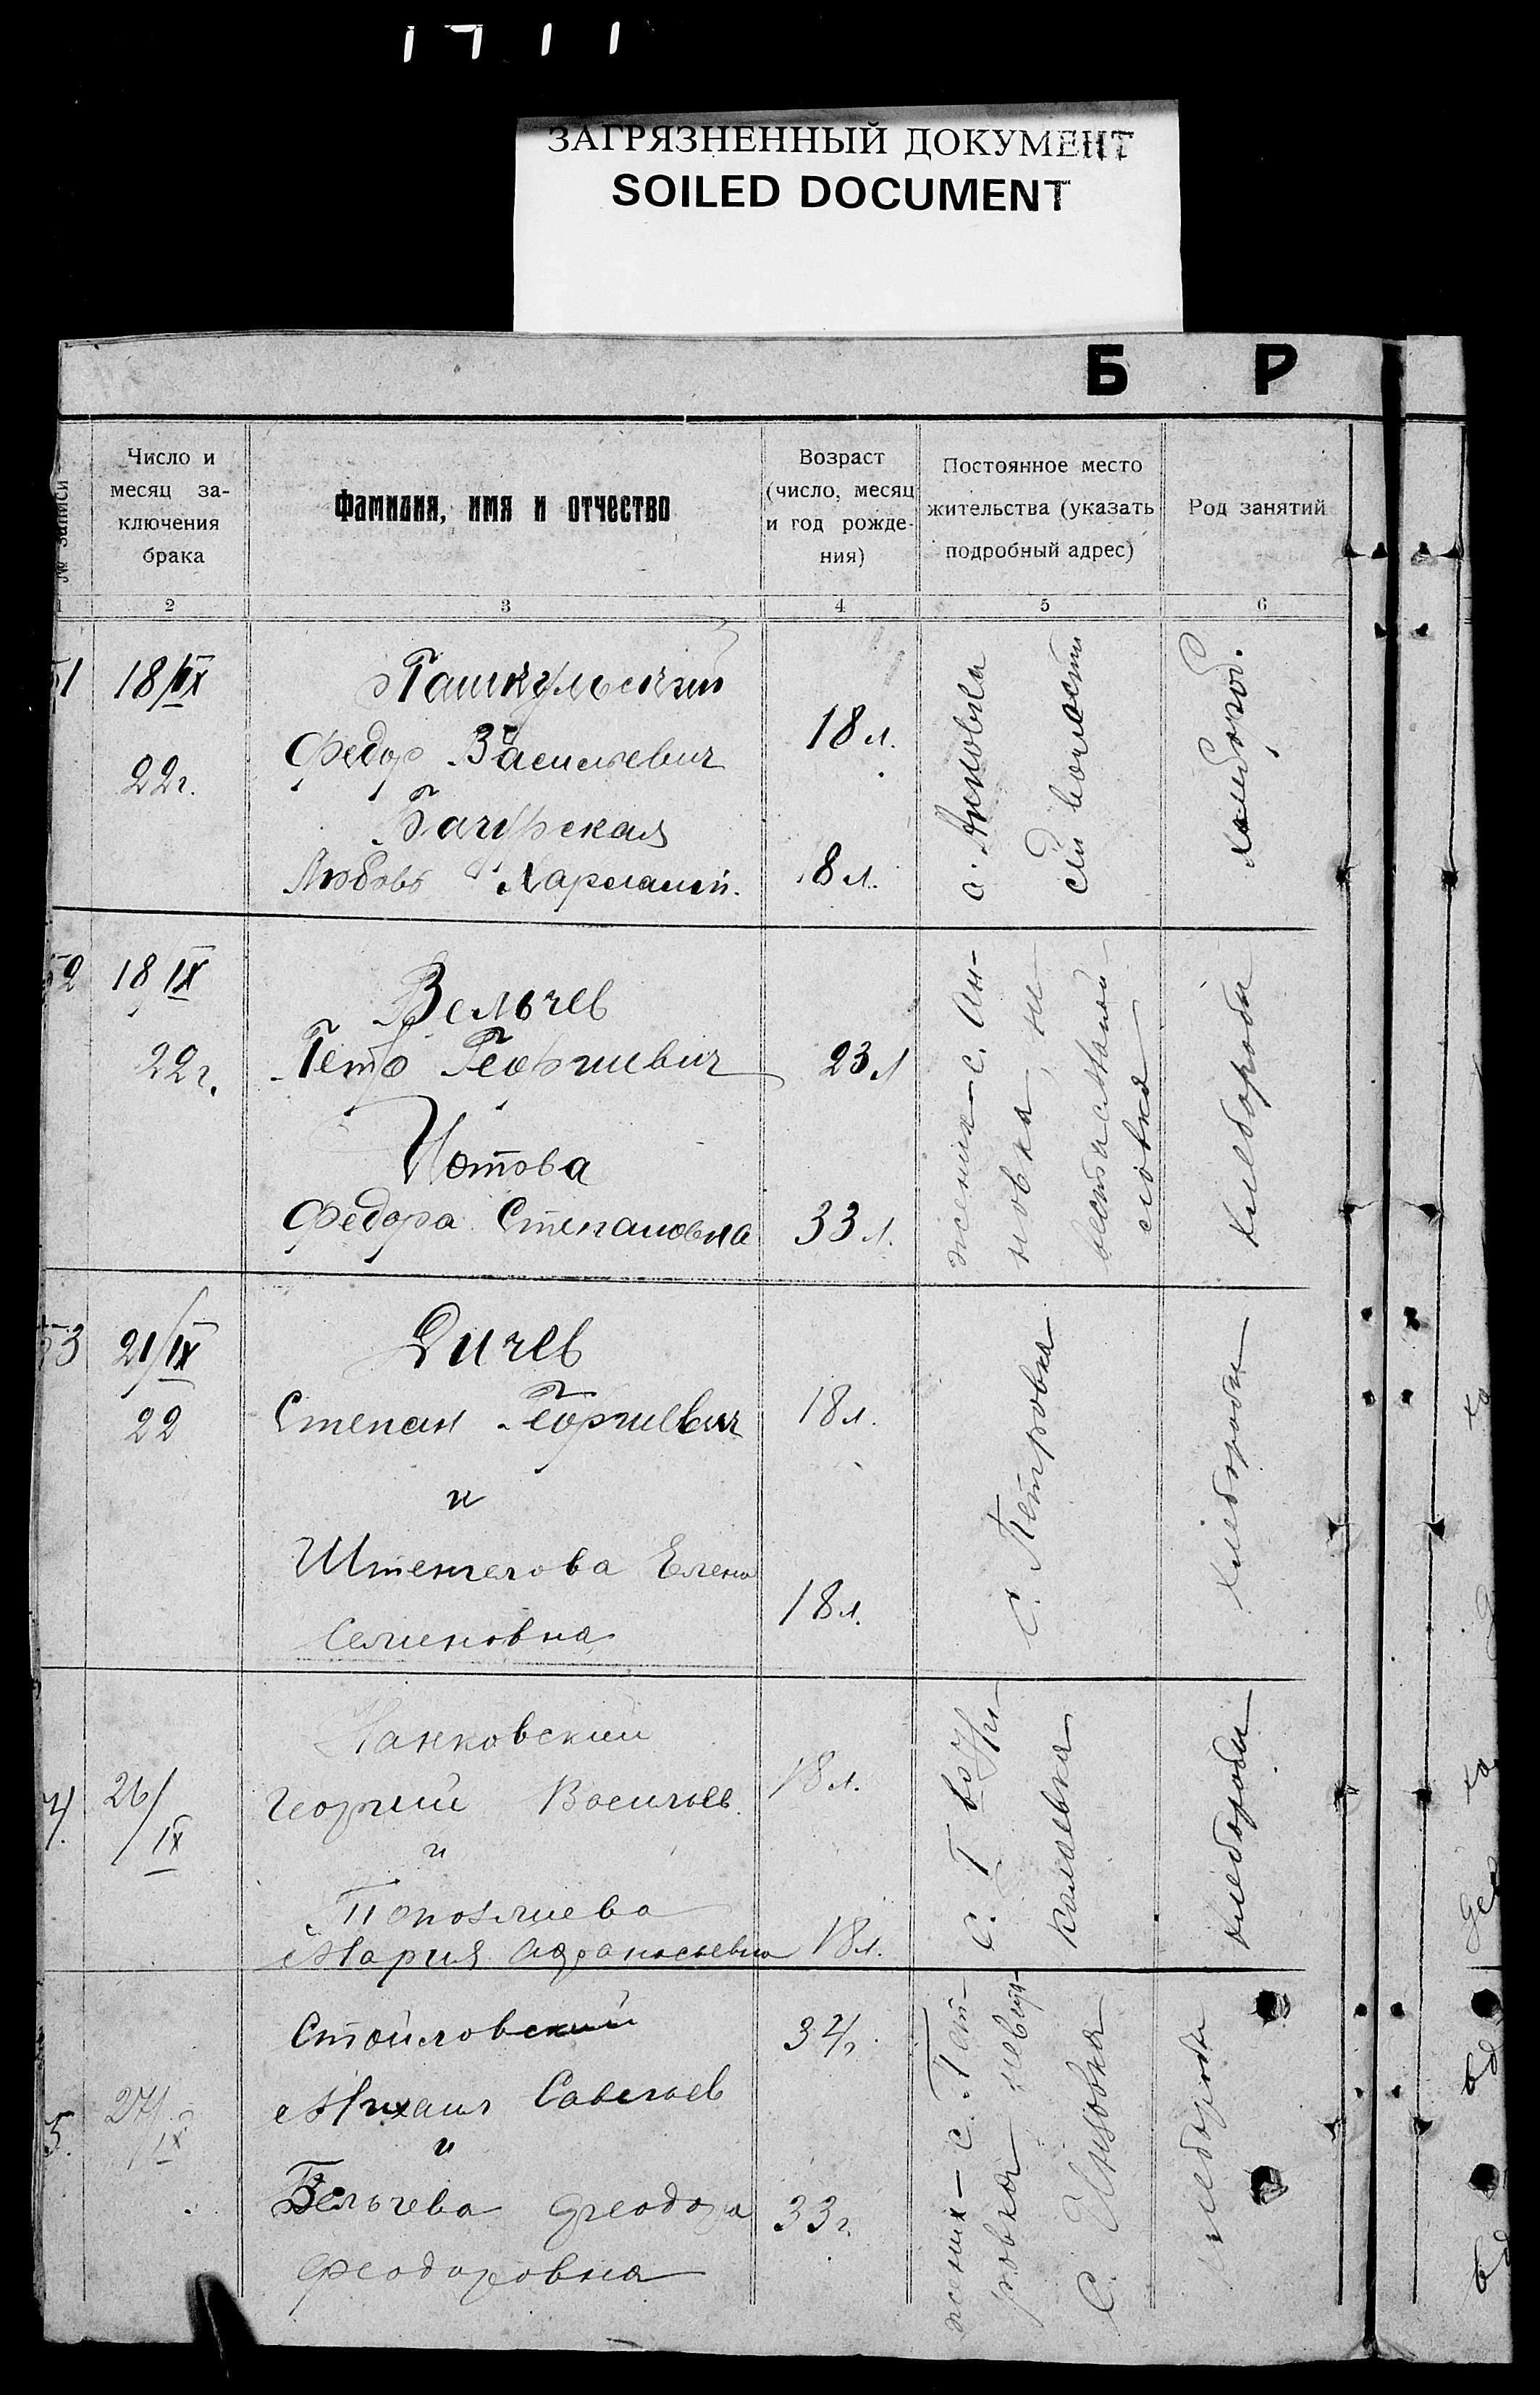 1711
ЗАГРЯЗНЕННЫЙ ДОКУМЕНТ
SOILED DOCUMENT
Б Р
№ записи
Число и
месяц за-
ключения
брака
Фамилия, имя и отчество
Возраст
(число, месяц
и год рожде-
ния)
Постоянное место
жительства (указать
подробный адрес)
Род занятий
1 2 3 4 5 6
51
18/IX
22г.
Пашкульский
Федор Васильевич
18 л.
Любовь Харламп.
18 л.
с. Анновка
волости
хлебороб.
52
18/IX
22г.
Вельчев
Петр Георгиевич
23 л
Федора Степановна
33 л.
жених – с. Ан-
новка, не-
веста
словка
хлеборобы
53
21/IX
22
Дичев
Степан Георгиевич
18 л.
и
Штенгелова Елена
Семеновна
18 л.
с. Петровка
хлеборобы
4.
26/
IX
Танковский
Георгий Васильев.
18 л.
и
Мария Афанасьевна
18 л.
с. Тво Ни-
колаевка
хлеборобы
5.
27/
IX
Стойловский
Михаил Савельев
34г.
и
Вельчева Феодора
33г.
Феодоровна
жених – с. Пет-
ровка невеста
с.
хлеборобы